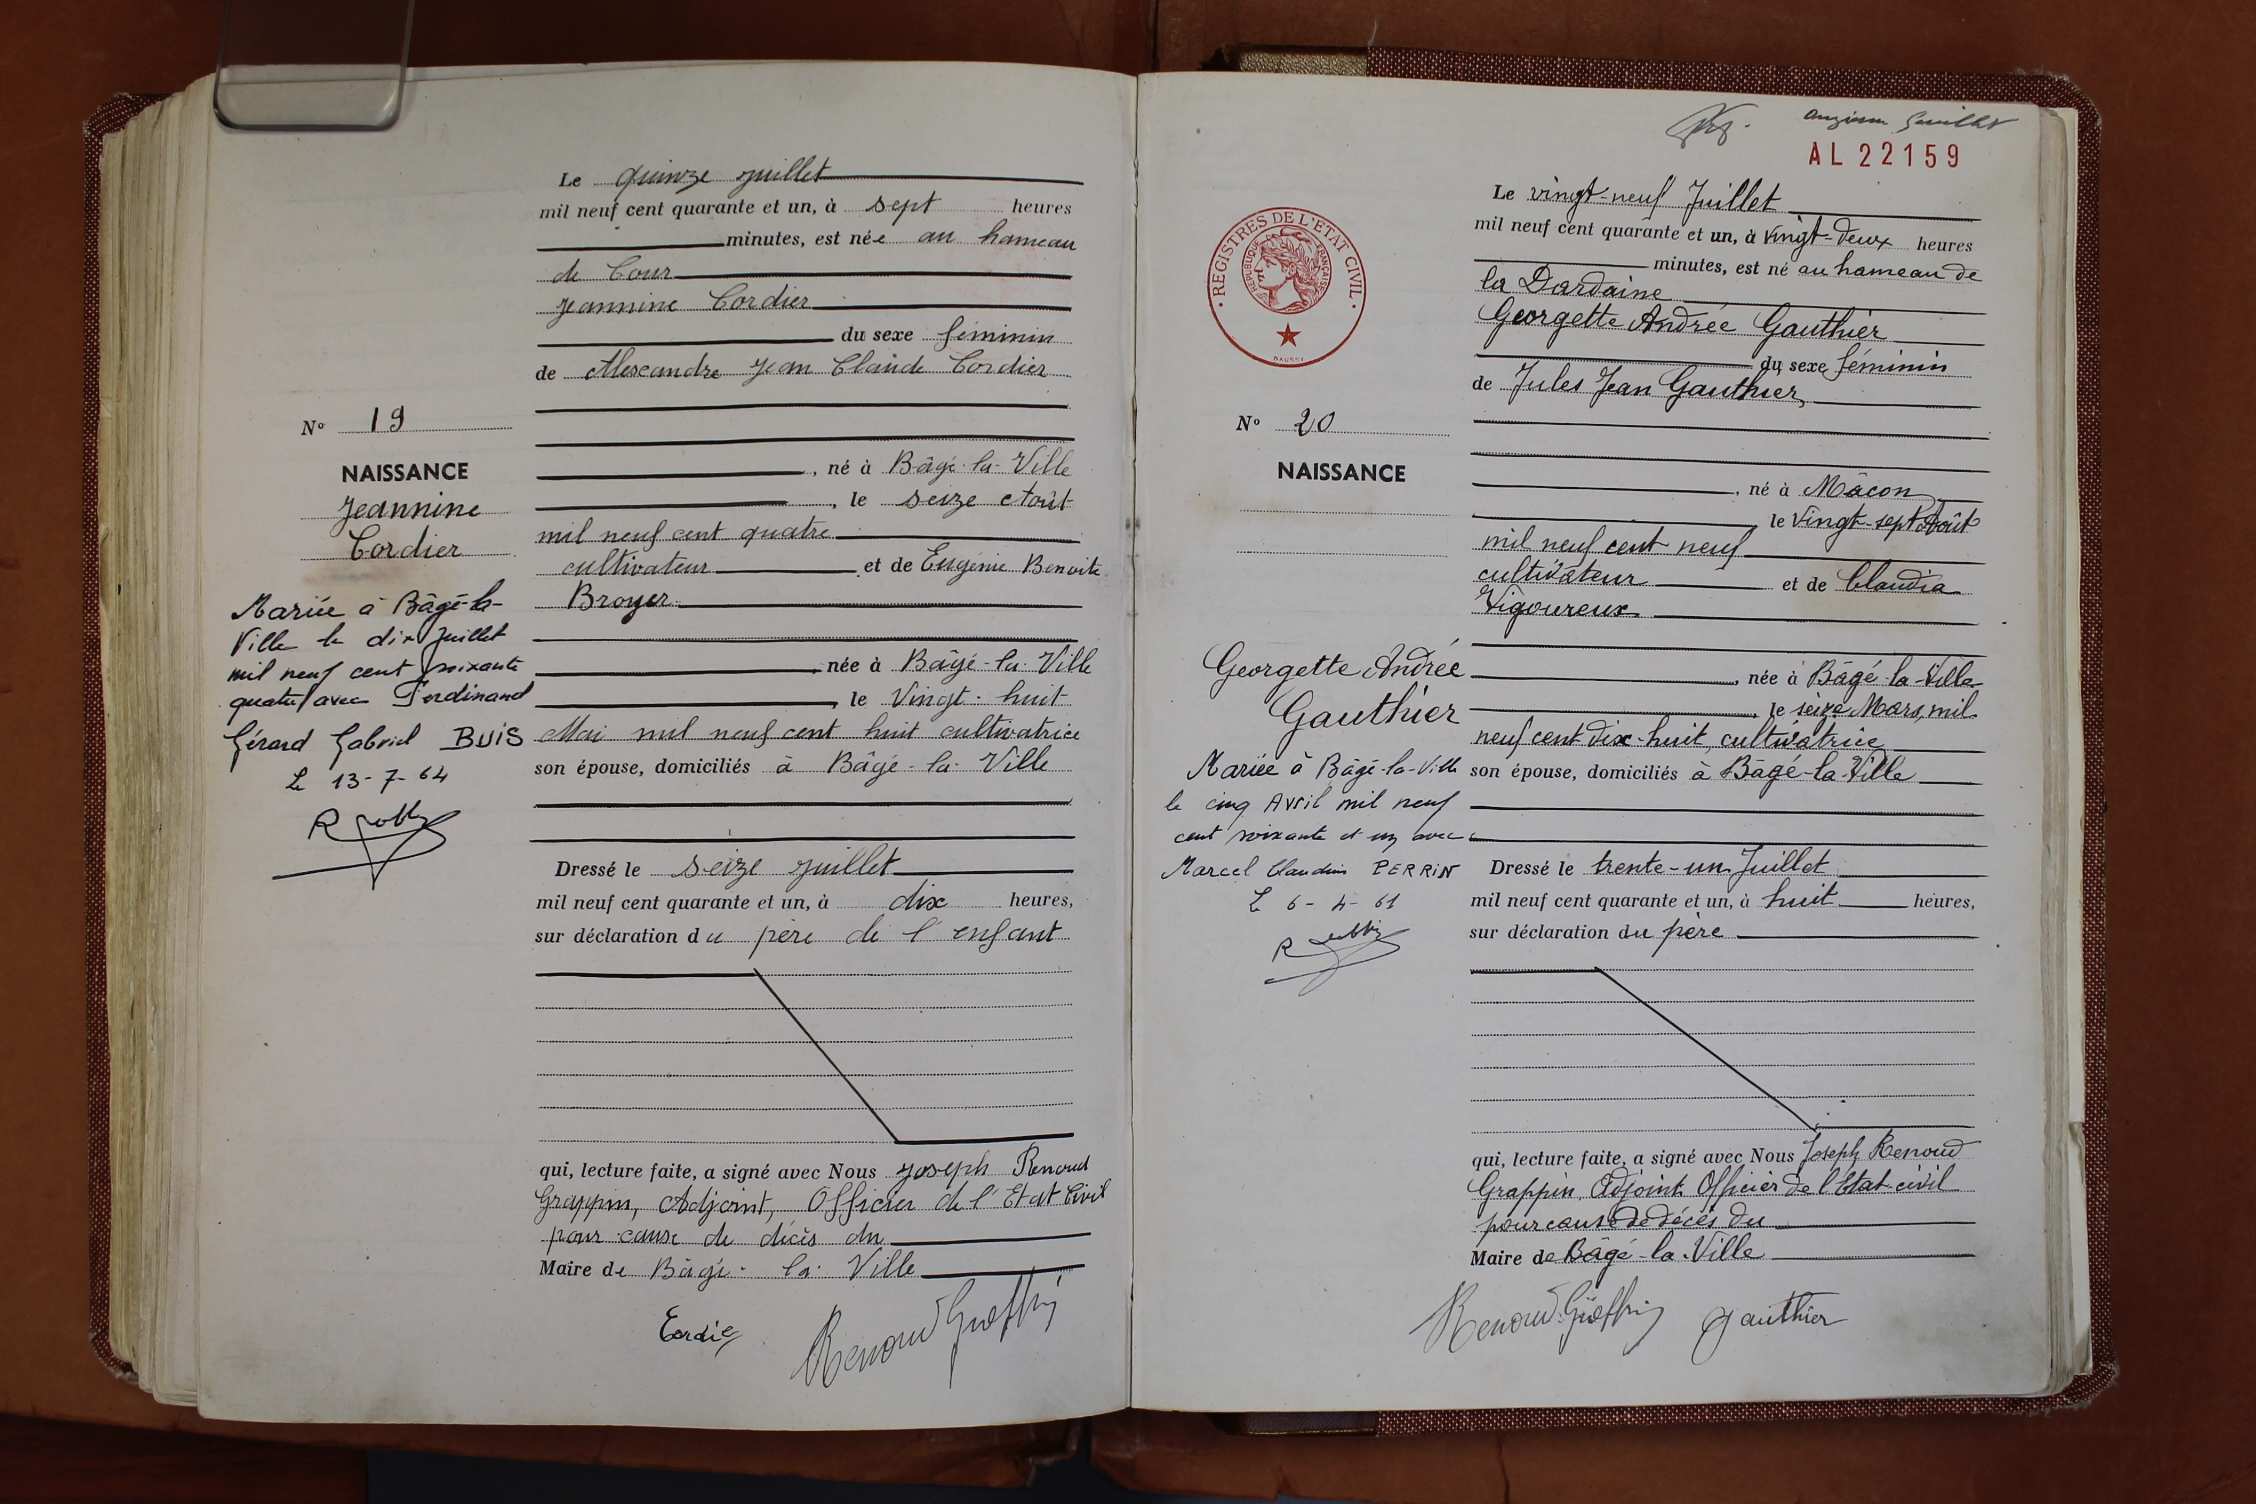 Le quinze juillet
mil neuf cent quarante et un, à sept heures
minutes, est née au hameau
de Cour
Jeannine Cordier
du sexe féminin
de Alexandre Jean Claude Cordier
Nº 19
NAISSANCE
Jeannine
Cordier
, né à Bâgé-la-Ville
, le seize Août
mil neuf cent quatre
cultivateur et de Eugénie Benoite
Broyer
née à Bâgé-la-Ville
, le Vingt-huit
Mai mil neuf cent huit cultivatrice
son épouse, domiciliés à Bâgé-la-Ville
Mariée à Bâgé-la-
Ville le dix Juillet
mil neuf cent soixante
quatre avec Ferdinand
Gérard Gabriel BUIS
Le 13-7-64
Dressé le seize juillet
mil neuf cent quarante et un, à dix heures,
sur déclaration du père de l'enfant
qui, lecture faite, a signé avec Nous Joseph Renoud
Grappin, Adjoint, Officier de l'Etat Civil
pour cause de décès du
Maire de Bâgé-la-Ville
Cordier
Renoud Grappin
AL 22159
REGISTRES DE L'ETAT CIVIL
REPUBLIQUE FRANÇAISE
Le vingt-neuf Juillet
mil neuf cent quarante et un, à vingt-deux heures
minutes, est né au hameau de
la Dardaine
Georgette Andrée Gauthier
du sexe féminin
de Jules Jean Gauthier,
Nº 20
NAISSANCE
, né à Mâcon
le vingt-sept Août
mil neuf cent neuf
cultivateur et de Claudia
Vigoureux
Georgette Andrée
Gauthier
, née à Bâgé-la-Ville
, le seize Mars, mil
neuf cent dix-huit, cultivatrice
son épouse, domiciliés à Bâgé-la-Ville
Mariée à Bâgé-la-Ville
le cinq Avril mil neuf
cent soixante et un avec
Marcel Claudius PERRIN
Le 6-4-61
Dressé le trente-un Juillet
mil neuf cent quarante et un, à huit heures,
sur déclaration du père
qui, lecture faite, a signé avec Nous Joseph Renoud
Grappin, Adjoint Officier de l'Etat-civil
pour cause de décès du
Maire de Bâgé-la-Ville
Renoud-Grappin
Gauthier